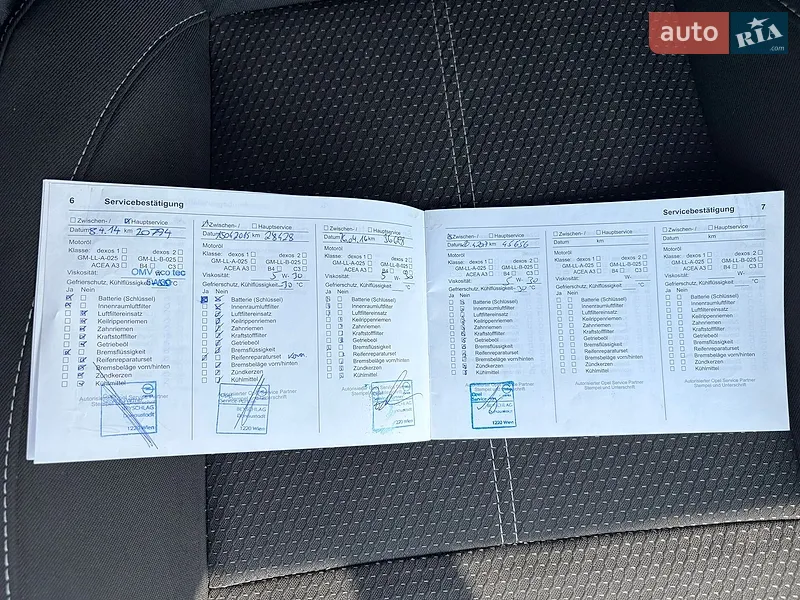 auto RIA.com
6 Servicebestätigung
Zwischen- / Hauptservice
Datum 8.4.14 km 20794
Motoröl
Klasse: dexos 1 dexos 2
GM-LL-A-025 GM-LL-B-025
ACEA A3 B4 C3
Viskosität: OMV eco tec
Gefrierschutz, Kühlflüssigkeit
Ja Nein
Batterie (Schlüssel)
Innenraumluftfilter
Luftfiltereinsatz
Keilrippenriemen
Zahnriemen
Kraftstofffilter
Getriebeöl
Bremsflüssigkeit
Reifenreparaturset
Bremsbeläge vorn/hinten
Zündkerzen
Kühlmittel
Autorisierter Opel Service Partner
BEYSCHLAG
1220 Wien
Zwischen- / Hauptservice
Datum km 28428
Motoröl
Klasse: dexos 1 dexos 2
GM-LL-A-025 GM-LL-B-025
ACEA A3 B4 C3
Viskosität: 5 W- 30
Gefrierschutz, Kühlflüssigkeit -30 °C
Ja Nein
Batterie (Schlüssel)
Innenraumluftfilter
Luftfiltereinsatz
Keilrippenriemen
Zahnriemen
Kraftstofffilter
Getriebeöl
Bremsflüssigkeit
Reifenreparaturset
Bremsbeläge vorn/hinten
Zündkerzen
Kühlmittel
Opel Service Partner
Stempel und Unterschrift
BEYSCHLAG
1220 Wien
Zwischen- / Hauptservice
Datum km
Motoröl
Klasse: dexos 1 dexos 2
GM-LL-A-025 GM-LL-B-025
ACEA A3 B4 C3
Viskosität: 5 W- 30
Gefrierschutz, Kühlflüssigkeit °C
Ja Nein
Batterie (Schlüssel)
Innenraumluftfilter
Luftfiltereinsatz
Keilrippenriemen
Zahnriemen
Kraftstofffilter
Getriebeöl
Bremsflüssigkeit
Reifenreparaturset
Bremsbeläge vorn/hinten
Zündkerzen
Kühlmittel
Autorisierter Opel Service Partner
1220 Wien
Servicebestätigung 7
Zwischen- / Hauptservice
Datum km 45656
Motoröl
Klasse: dexos 1 dexos 2
GM-LL-A-025 GM-LL-B-025
ACEA A3 B4 C3
Viskosität: 5 W- 30
Gefrierschutz, Kühlflüssigkeit °C
Ja Nein
Batterie (Schlüssel)
Innenraumluftfilter
Luftfiltereinsatz
Keilrippenriemen
Zahnriemen
Kraftstofffilter
Getriebeöl
Bremsflüssigkeit
Reifenreparaturset
Bremsbeläge vorn/hinten
Zündkerzen
Kühlmittel
Opel
1220 Wien
Zwischen- / Hauptservice
Datum km
Motoröl
Klasse: dexos 1 dexos 2
GM-LL-A-025 GM-LL-B-025
ACEA A3 B4 C3
Viskosität: W-
Gefrierschutz, Kühlflüssigkeit °C
Ja Nein
Batterie (Schlüssel)
Innenraumluftfilter
Luftfiltereinsatz
Keilrippenriemen
Zahnriemen
Kraftstofffilter
Getriebeöl
Bremsflüssigkeit
Reifenreparaturset
Bremsbeläge vorn/hinten
Zündkerzen
Kühlmittel
Autorisierter Opel Service Partner
Stempel und Unterschrift
Zwischen- / Hauptservice
Datum km
Motoröl
Klasse: dexos 1 dexos 2
GM-LL-A-025 GM-LL-B-025
ACEA A3 B4 C3
Viskosität: W-
Gefrierschutz, Kühlflüssigkeit °C
Ja Nein
Batterie (Schlüssel)
Innenraumluftfilter
Luftfiltereinsatz
Keilrippenriemen
Zahnriemen
Kraftstofffilter
Getriebeöl
Bremsflüssigkeit
Reifenreparaturset
Bremsbeläge vorn/hinten
Zündkerzen
Kühlmittel
Autorisierter Opel Service Partner
Stempel und Unterschrift